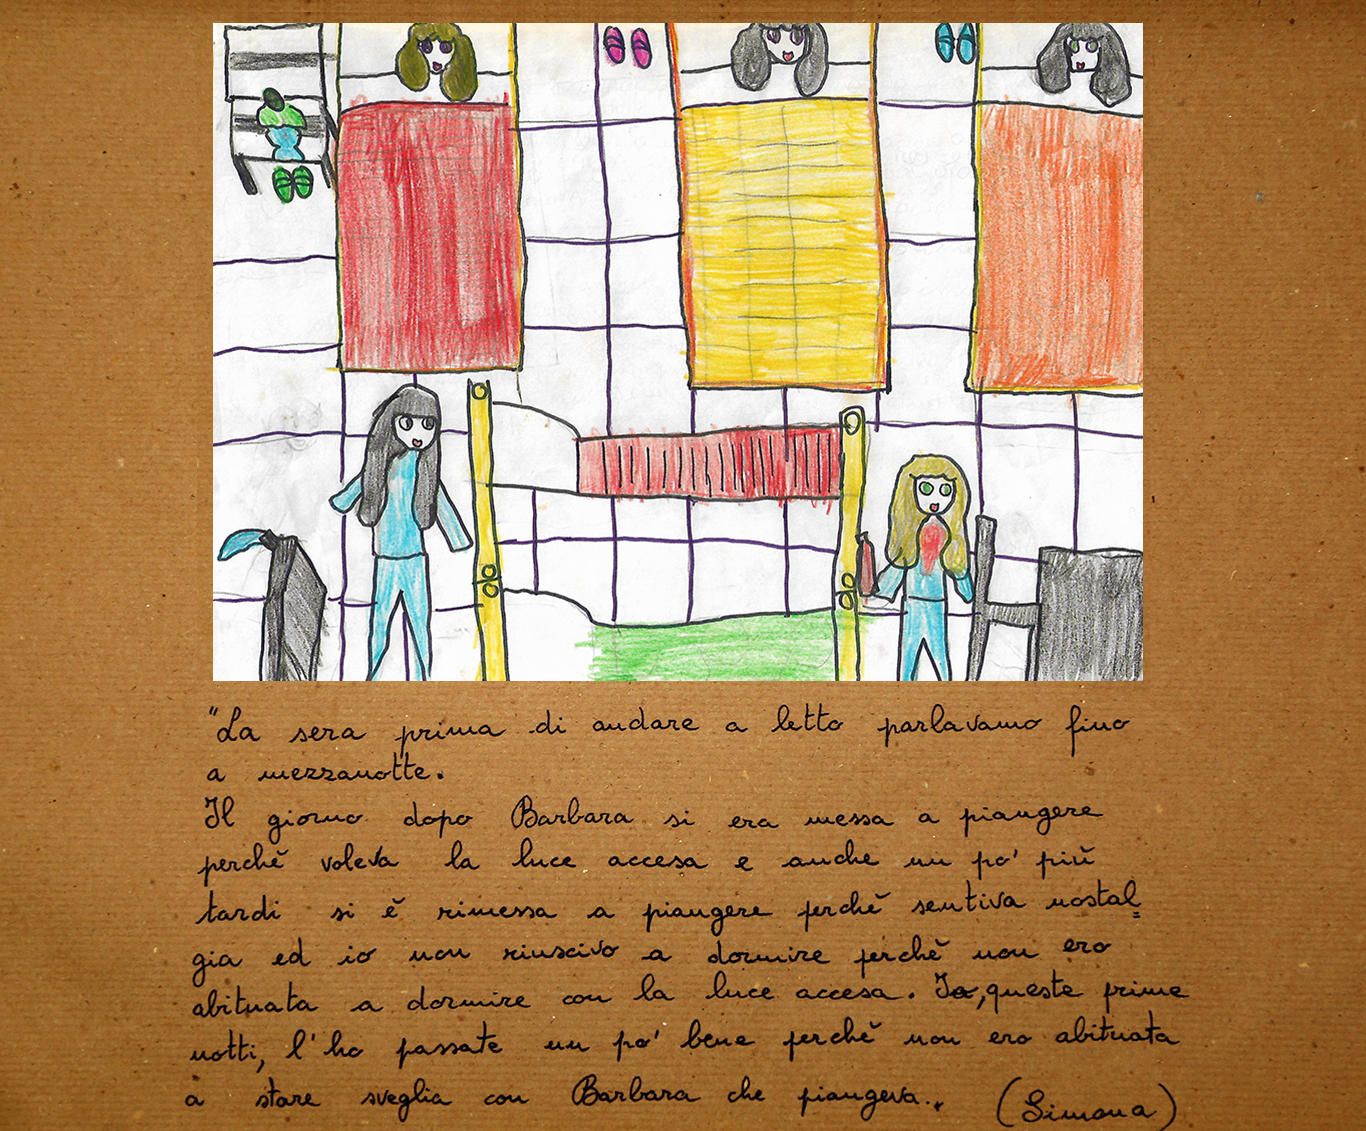 "La sera prima di andare a letto parlavamo fino
a mezzanotte.
Il giorno dopo Barbara si era messa a piangere
perchè voleva la luce accesa e anche un po' più
tardi si è rimessa a piangere perchè sentiva nostal=
gia ed io non riuscivo a dormire perchè non ero
abituata a dormire con la luce accesa. Io, queste prime
notti, l'ho passate un po' bene perchè non ero abituata
a stare sveglia con Barbara che piangeva..
(Simona)